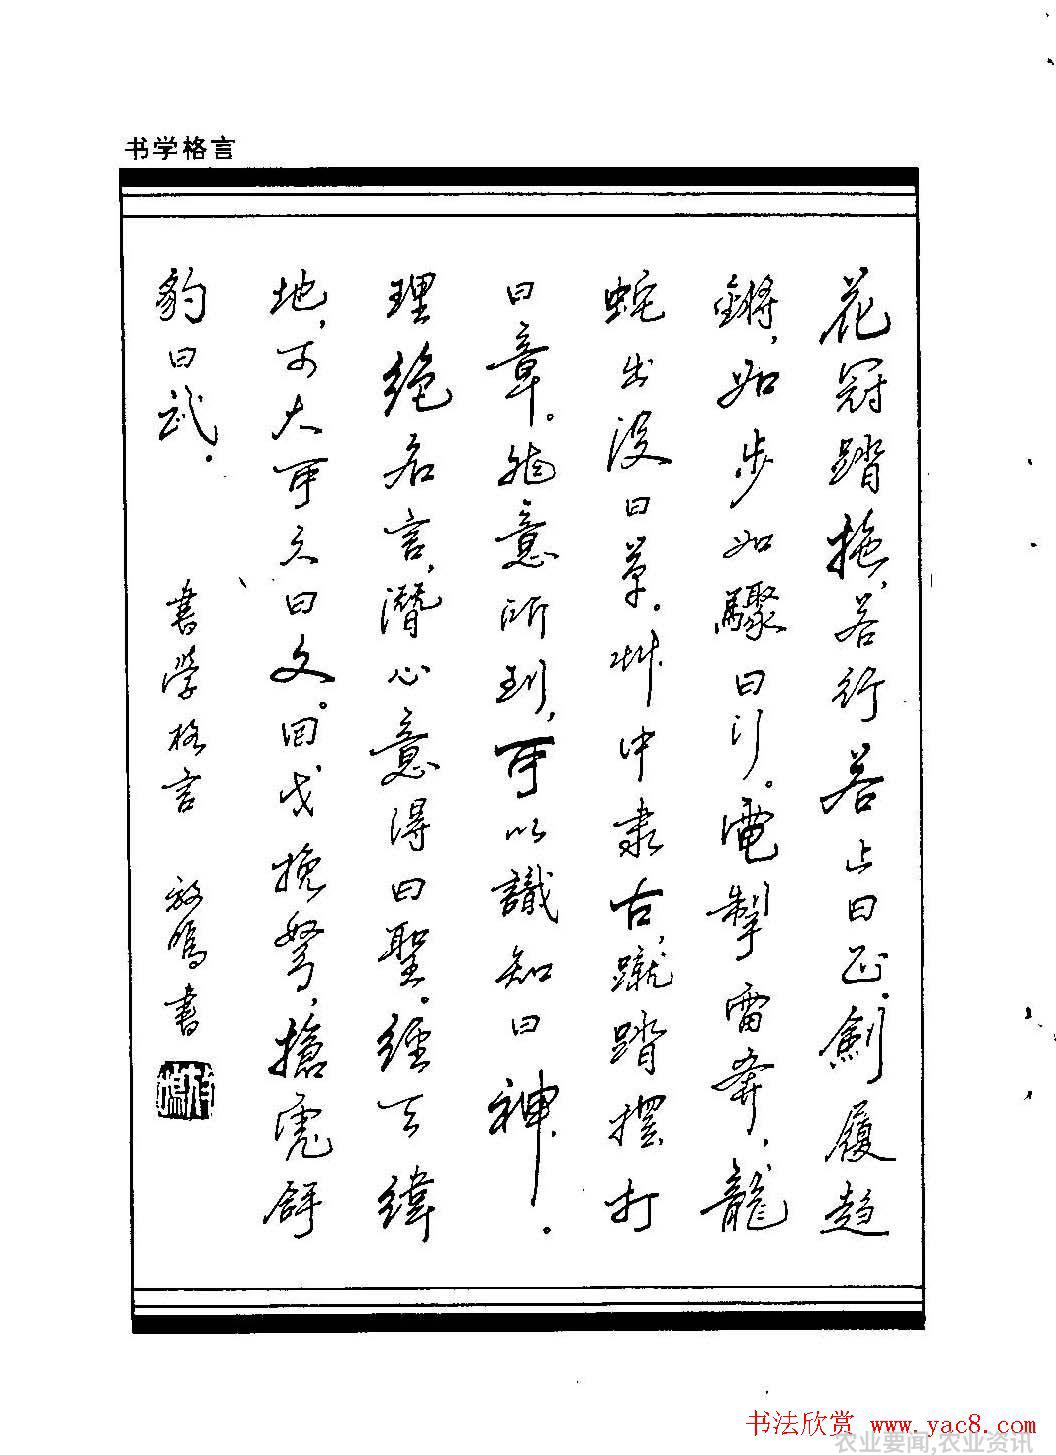 书学格言
花冠踏拖,若行若止曰正。劍履趋
鏘,如步如驟曰行。電掣雷奔,龍
蛇出没曰草。艸中隶古,蹴踏擺打
曰章。能意所到,可以識知曰神。
理絕名言,潛心意得曰聖。經天緯
地,可大可久曰文。回戈挽弩,搶虎舒
豹曰武。
書学格言 書
书法欣赏 www.yac8.com
农业要闻,农业资讯